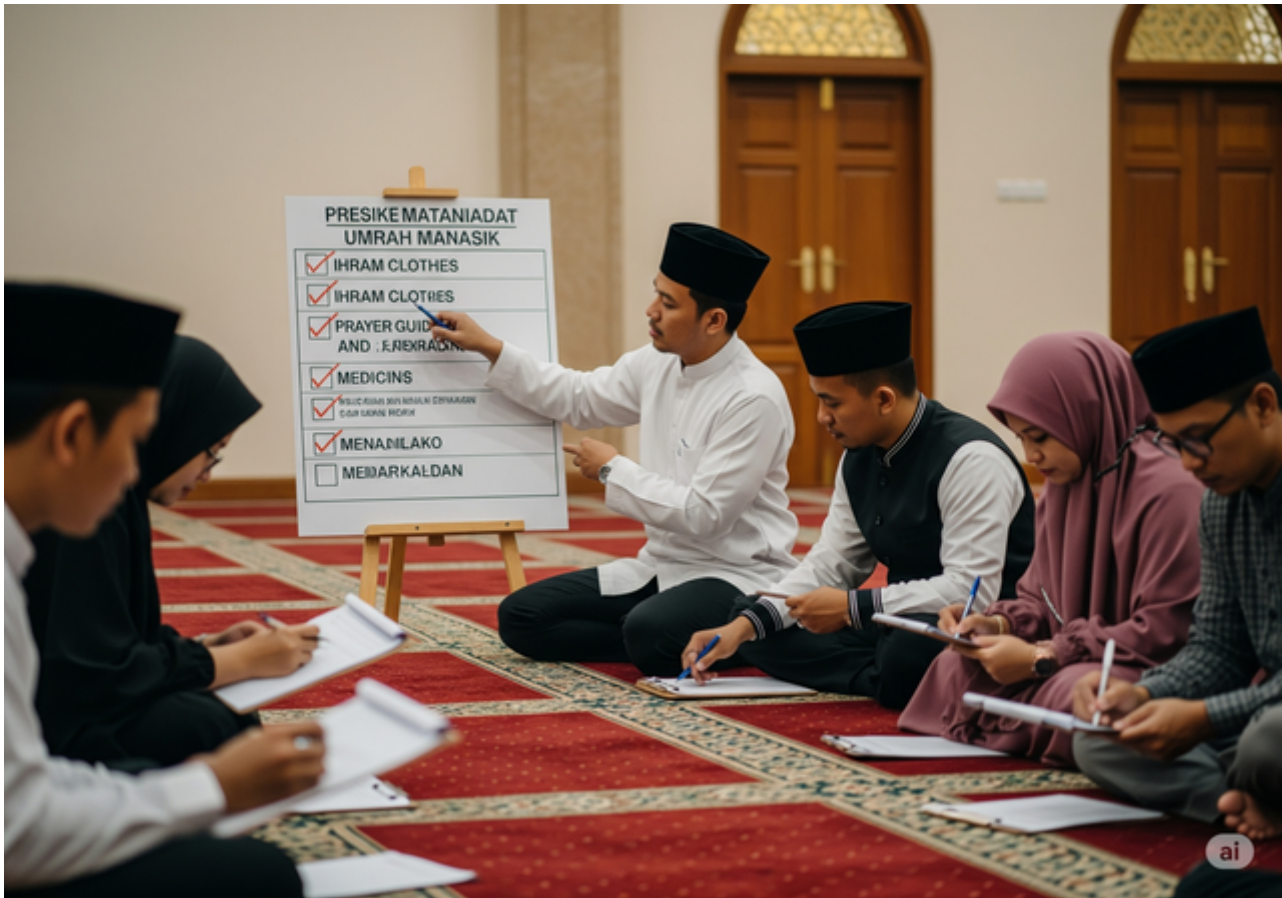 PRESIKE MATANIADAT
UMRAH MANASIK
IHRAM CLOTHES
IHRAM CLOTHES
PRAYER GUID
AND
MEDICINS
MENADILAKO
MEIDARKALDAN
ai